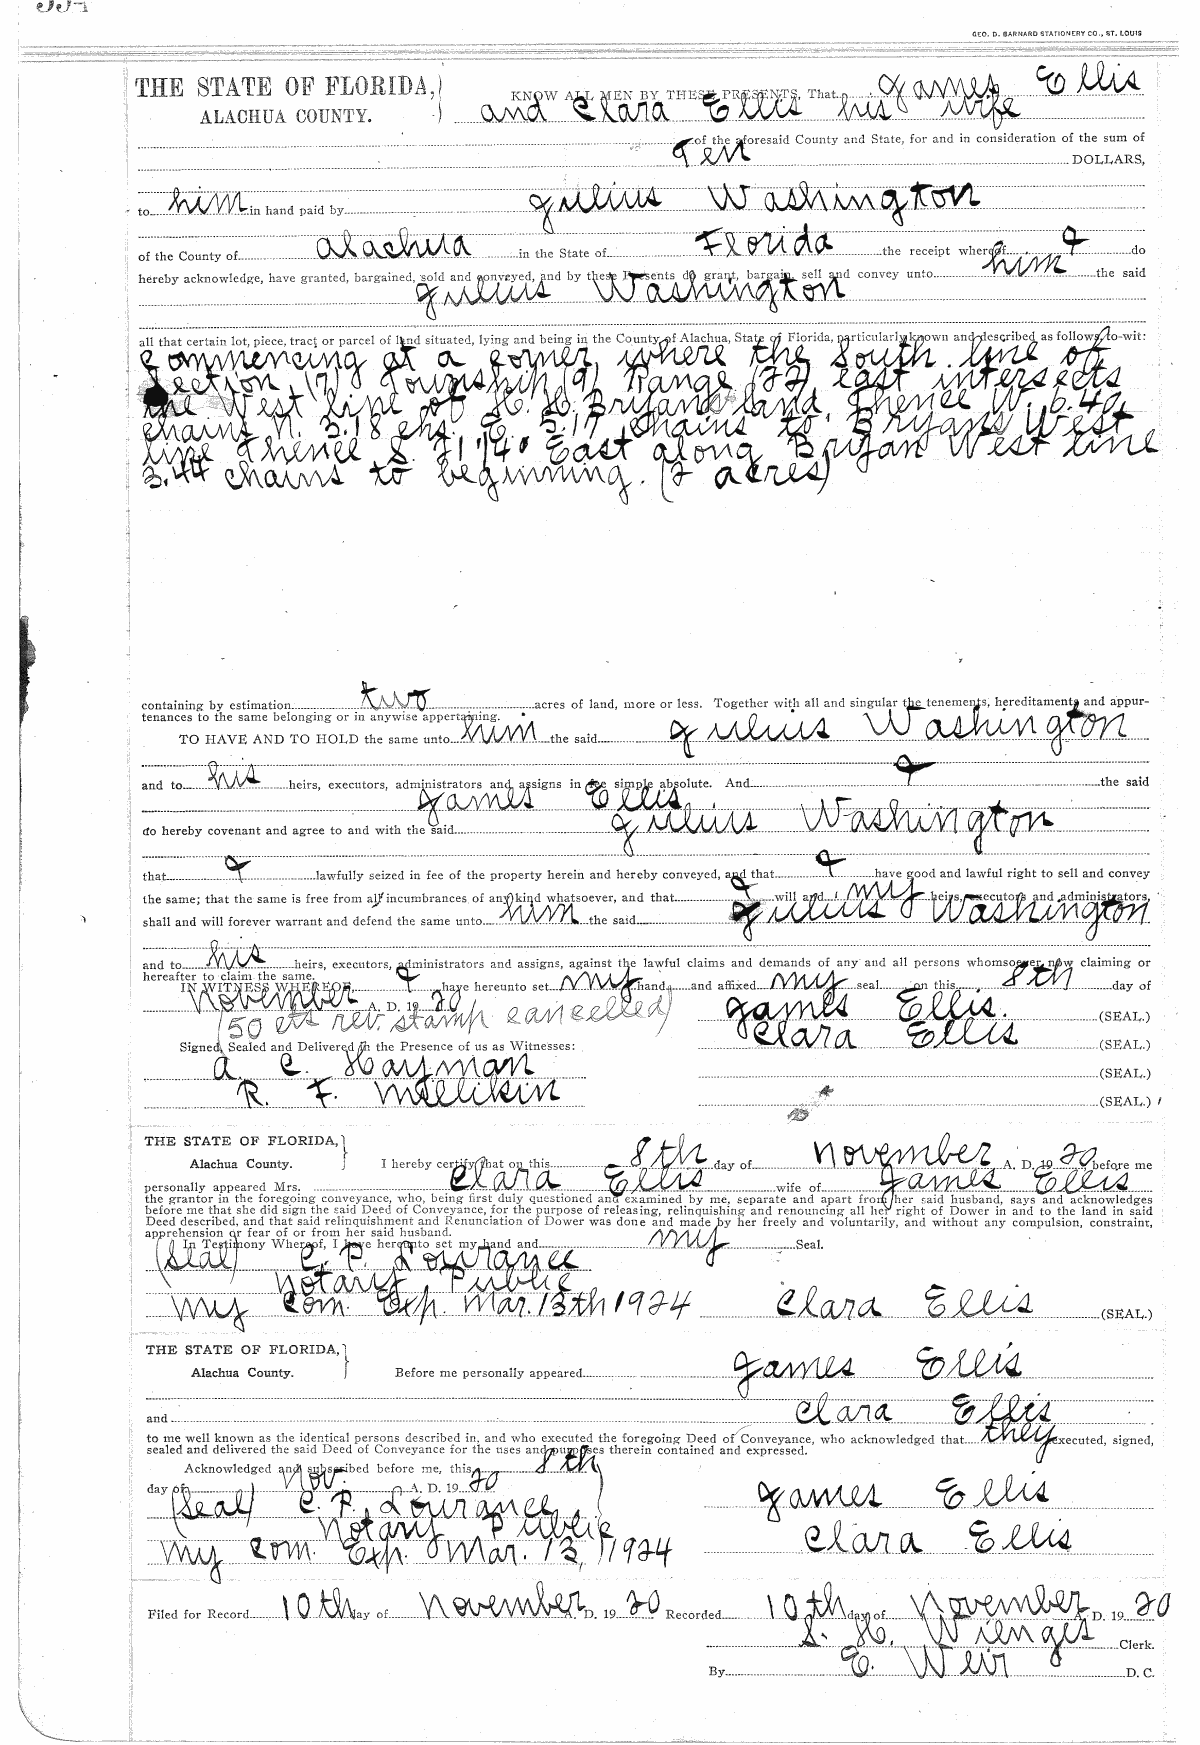 GEO. D. BARNARD STATIONERY CO., ST. LOUIS
THE STATE OF FLORIDA,
ALACHUA COUNTY.
KNOW ALL MEN BY THESE PRESENTS, That James Ellis
and Clara Ellis his wife
of the aforesaid County and State, for and in consideration of the sum of
Ten DOLLARS,
to him in hand paid by Julius Washington
of the County of Alachua in the State of Florida the receipt whereof I do
hereby acknowledge, have granted, bargained, sold and conveyed, and by these Presents do grant, bargain, sell and convey unto him the said
Julius Washington
all that certain lot, piece, tract or parcel of land situated, lying and being in the County of Alachua, State of Florida, particularly known and described as follows, to-wit:
Commencing at a corner where the South line of
Section (7) Township (9) Range (22) east intersects
the West line of H. H. Bryans land, Thence W. 6.40
chains N. 3.18 chs. E. 5.17 chains to Bryans West
line Thence S. 21°/4° East along Bryan West line
3.44 chains to beginning. (2 acres)
containing by estimation two acres of land, more or less. Together with all and singular the tenements, hereditaments and appur-
tenances to the same belonging or in anywise appertaining.
TO HAVE AND TO HOLD the same unto him the said Julius Washington
and to his heirs, executors, administrators and assigns in fee simple absolute. And I the said
James Ellis
do hereby covenant and agree to and with the said Julius Washington
that I lawfully seized in fee of the property herein and hereby conveyed, and that I have good and lawful right to sell and convey
the same; that the same is free from all incumbrances of any kind whatsoever, and that I will and my heirs, executors and administrators,
shall and will forever warrant and defend the same unto him the said Julius Washington
and to his heirs, executors, administrators and assigns, against the lawful claims and demands of any and all persons whomsoever now claiming or
hereafter to claim the same.
IN WITNESS WHEREOF, I have hereunto set my hand and affixed my seal on this 8th day of
November A. D. 19 20
(50 cts rev. stamp cancelled)
James Ellis. (SEAL.)
Clara Ellis (SEAL.)
Signed, Sealed and Delivered in the Presence of us as Witnesses:
A. C. Hayman (SEAL.)
R. F. Millikin (SEAL.)
THE STATE OF FLORIDA,
Alachua County.
I hereby certify that on this 8th day of November A. D. 19 20 before me
personally appeared Mrs. Clara Ellis wife of James Ellis
the grantor in the foregoing conveyance, who, being first duly questioned and examined by me, separate and apart from her said husband, says and acknowledges
before me that she did sign the said Deed of Conveyance, for the purpose of releasing, relinquishing and renouncing all her right of Dower in and to the land in said
Deed described, and that said relinquishment and Renunciation of Dower was done and made by her freely and voluntarily, and without any compulsion, constraint,
apprehension or fear of or from her said husband.
In Testimony Whereof, I have hereunto set my hand and my Seal.
(Seal) C. P. Lourance
Notary Public
My Com. Exp. Mar. 13th 1924 Clara Ellis (SEAL.)
THE STATE OF FLORIDA,
Alachua County.
Before me personally appeared James Ellis
and Clara Ellis
to me well known as the identical persons described in, and who executed the foregoing Deed of Conveyance, who acknowledged that they executed, signed,
sealed and delivered the said Deed of Conveyance for the uses and purposes therein contained and expressed.
Acknowledged and subscribed before me, this 8th
day of Nov. A. D. 19 20
(Seal) C. P. Lourance James Ellis
Notary Public
My Com. Exp. Mar. 13, 1924 Clara Ellis
Filed for Record 10th day of November D. 19 20 Recorded 10th day of November A. D. 19 20
S. H. Wienges Clerk.
By E. Weir D. C.